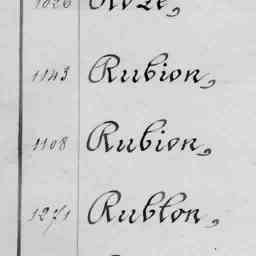 1143 Rubion,
1108 Rubion,
1271 Rublon,